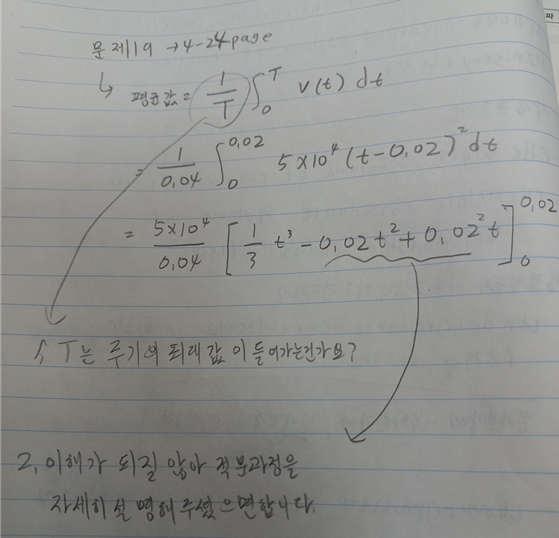 문제19 → 4-24page
↳ 평균값 = 1/T ∫₀ᵀ v(t) dt
= 1/0.04 ∫₀^0.02 5×10⁴ (t-0.02)² dt
= 5×10⁴/0.04 [1/3 t³ - 0.02t² + 0.02² t]₀^0.02
1, T는 주기의 최대값이 들어가는건가요?
2, 이해가 되질 않아 적분과정을
자세히 설명해주셨으면합니다.